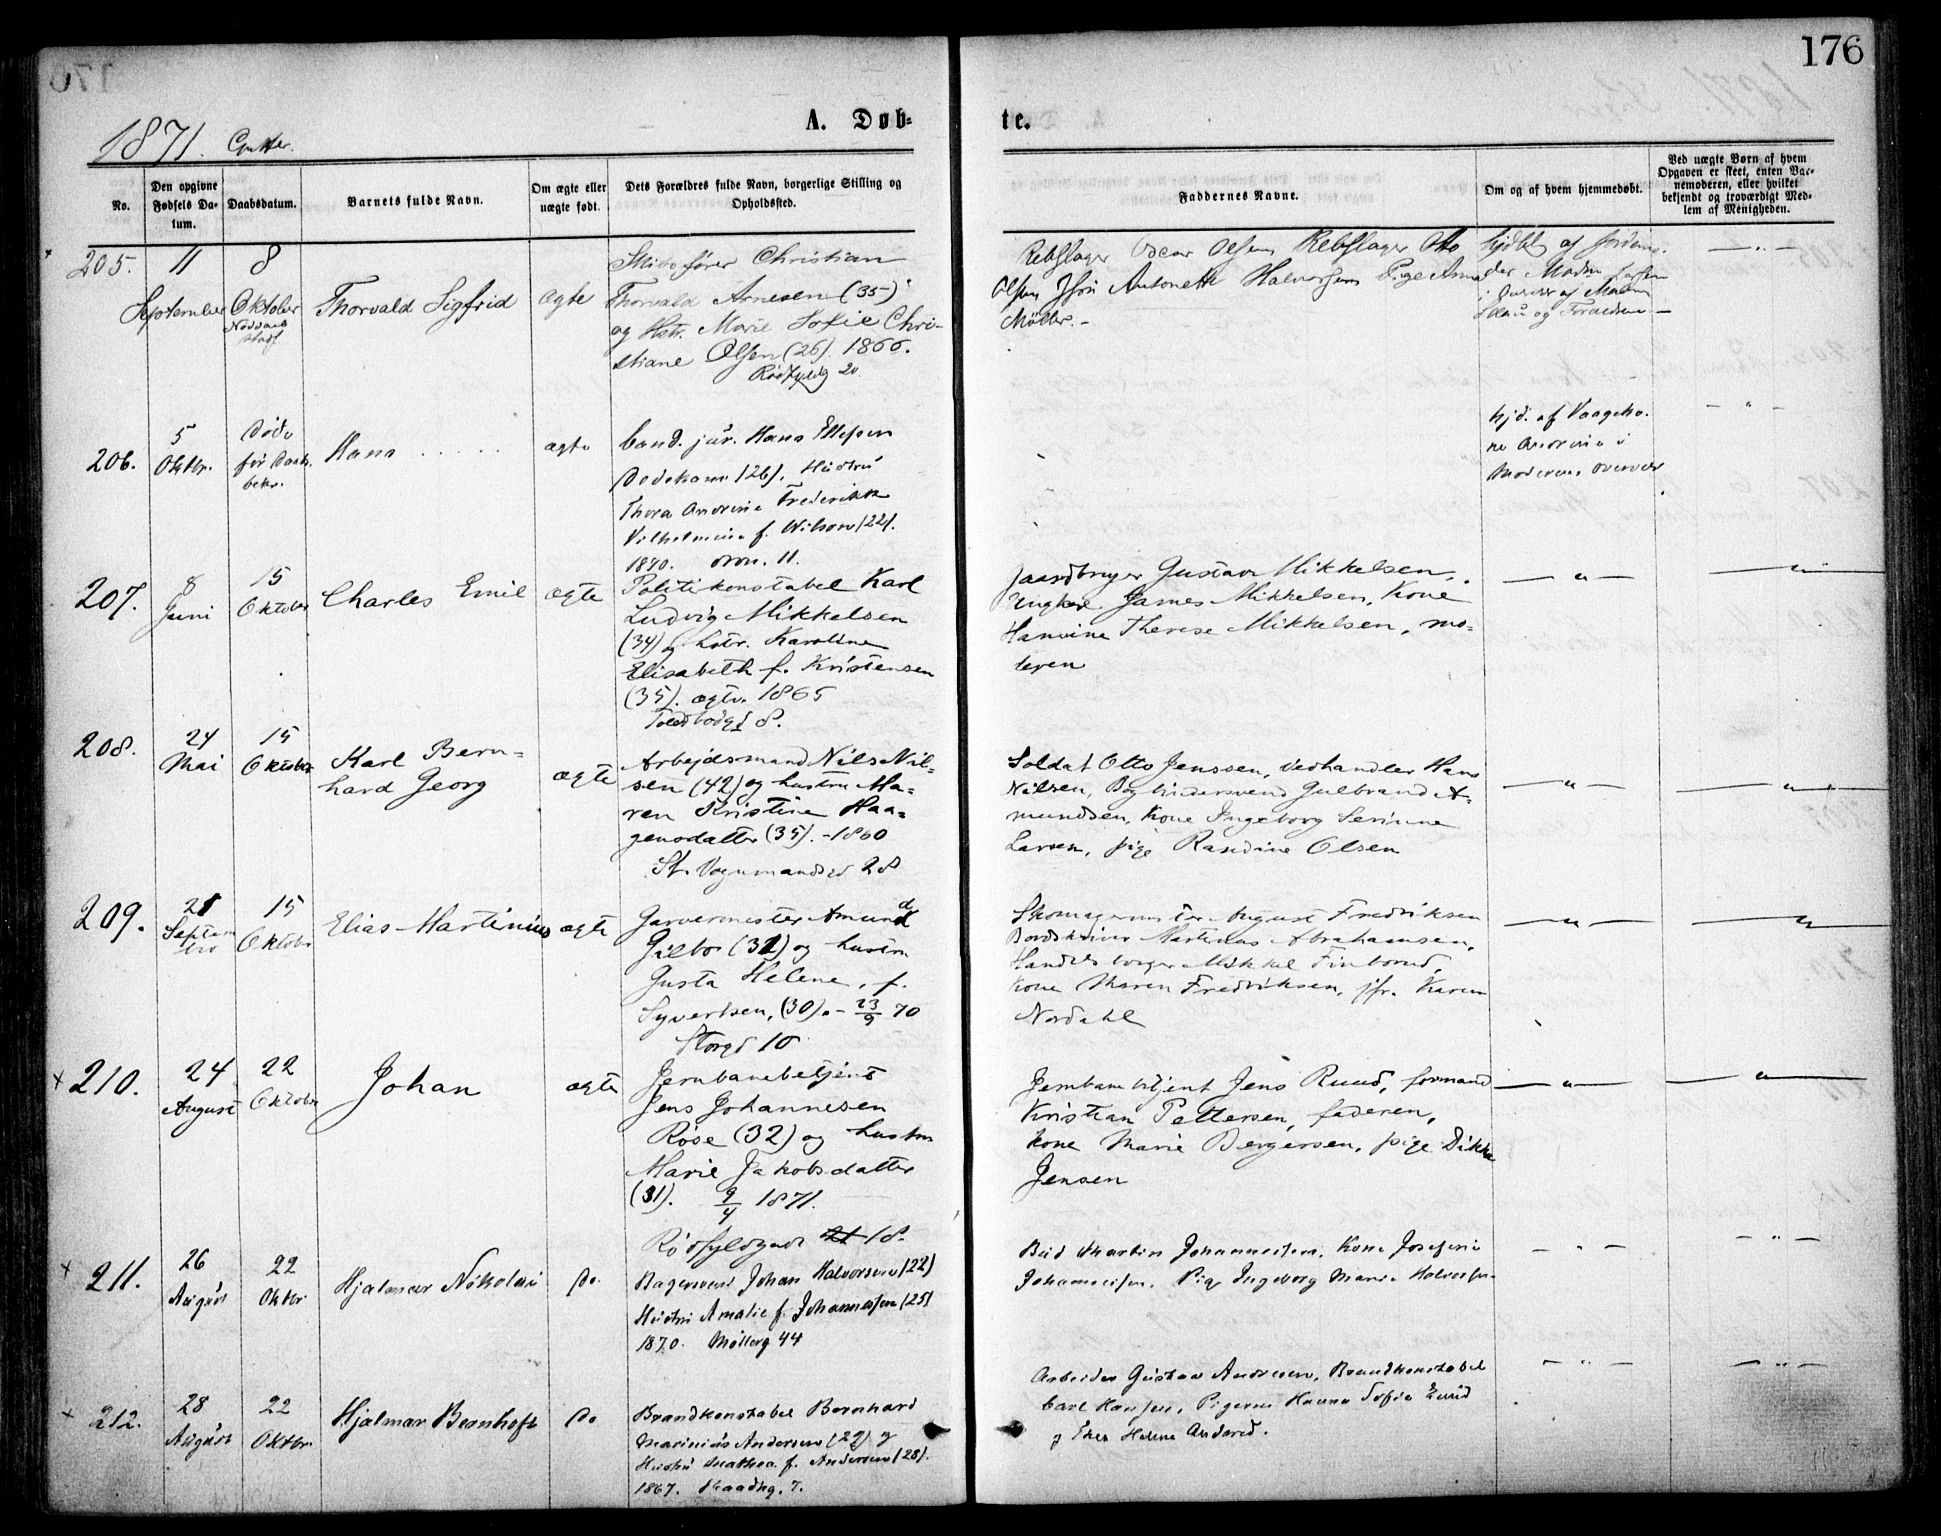 176
1871. Gutter.
A. Døb-
te.
No.
Den opgivne
Fødsels Da-
tum.
Daabsdatum.
Barnets fulde Navn.
Om ægte eller
uægte født.
Dets Forældres fulde Navn, borgerlige Stilling og
Opholdssted.
Faddernes Navne.
Om og af hvem hjemmedøbt.
Ved uægte Børn af hvem
Opgaven er skeet, enten Bar-
nemoderen, eller hvilket
bekjendt og troværdigt Med-
lem af Menigheden.
205.
11
September
8
Oktober
Thorvald Sigfrid
ægte
Skibsfører Christian
Thorvald Arnesen (35)
og Hstr. Marie Sofie Chri-
stiane Olsen (26) 1866.
Rødfyldg 20.
Rebslager Oscar Olsen Rebslager Otto
Olsen Jfr Antonette Halvorsen Pige Anna
Møller. -
— " —
206.
5
Oktbr.
Døde
før Daab.
bekr.
Hans . . . . .
ægte
Cand. jur. Hans Ellefsen
(26), Hustru
Thora Andrine Frederikke
Vilhelmine f. Wilson (22).
1870. 11.
Hjd. af
ne Andrine i
Moderens overvær
— " —
207.
8
Juni
15
Oktober
Charles Emil
ægte
Politikonstabel Karl
Ludvig Mikkelsen
(34) og hstr. Karoline
Elisabeth f. Kristensen
(35). ægtv. 1865
Toldbodgd 8.
Gaardbruger Gustav Mikkelsen,
Ungkarl James Mikkelsen, Kone
Hansine Therese Mikkelsen, mo-
deren
— " —
— " —
208.
24
Mai
15
Oktober
Karl Bern-
hard Georg
ægte
Arbejdsmand Nils Nil-
sen (42) og hustru Ma-
ren Kristine Haa-
gensdatter (35). - 1860
St. Vognmandsgd 28
Soldat Otto Jenssen, Vedhandler Hans
Nilsen, Bogbindersvend Gulbrand A-
mundsen, Kone Ingeborg Serinne
Larsen, pige Randine Olsen
— " —
— " —
209.
21
Septem
ber
15
Oktober
Elias Martinius
ægte
Garvermester Amund
Gilbo (31) og hustru
Gusta Helene, f.
Syvertsen, (30). - 23/9 70
Storgd 10
Skomagermester August Fredriksen
Martinus Abrahamsen,
Handelsborger Mikkel Finborud,
Kone Maren Fredriksen, jfr. Karen
Nordahl
— " —
— " —
× 210.
24
August
22
Oktober
Johan
ægte
Jernbanebetjent
Jens Johannesen
Røse (32) og hustru
Marie Jakobsdatter
(31). 9/4 1871.
Rødfyldgade 21 18.
Jernbanebetjent Jens Ruud, formand
Kristian Pettersen, faderen,
kone Marie Bergersen, pige Dikka
Jensen
— " —
— " —
× 211.
26
August
22
Oktbr
Hjalmar Nikolai
Do.
Bagersvend Johan Halvorsen (22)
Hustru Amalie f. Johannessen (25)
1870. Møllerg 44
Bud Martin Johannessen. Kone Josefine
Johannessen. Pige Ingeborg Marie Halvorsen.
— " —
— " —
× 212.
28
August
22
Oktbr.
Hjalmar Bernhoft
Do
Brandkonstabel Bernhard
Marinius Andersen (29) og
Hustru Mathea f. Andersen (28).
1867. 7.
Arbeider Gustav Andresen, Brandkonstabel
Carl Hansen, Pigerne Hanna Sofie Lund
og Helene
— " —
— " —